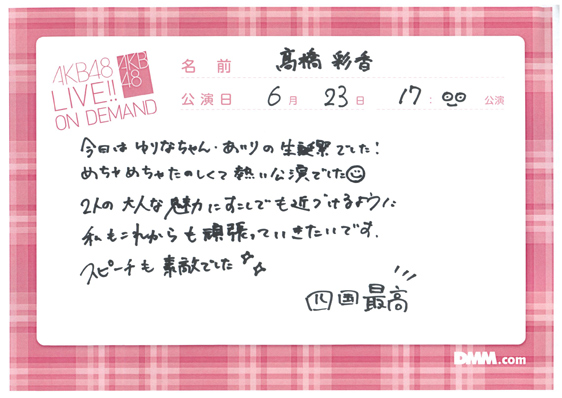 AKB48
LIVE!!
ON DEMAND
AKB
48
名前 高橋彩香
公演日 6月 23日 17:00 公演
今日は ゆりなちゃん・あいりの 生誕祭でした!
めちゃめちゃたのしくて 熱い公演でした☺
2人の 大人な魅力にすこしでも近づけるように
私もこれからも頑張っていきたいです.
スピーチも 素敵でした☆☆
四国最高
DMM.com